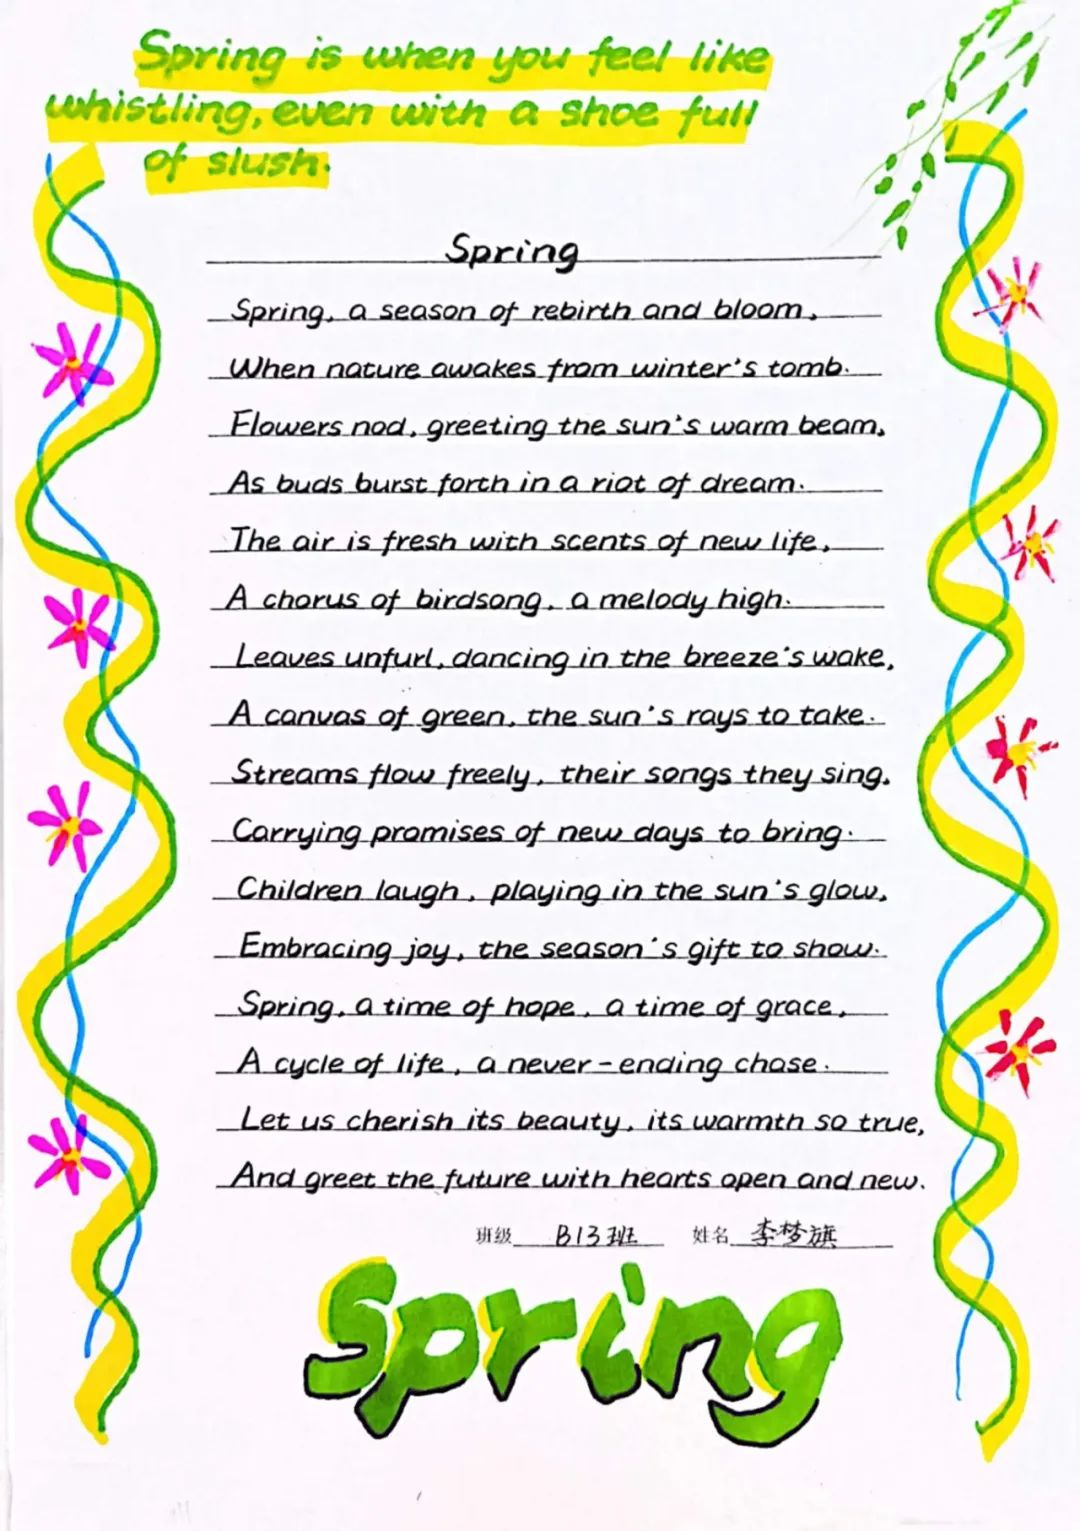 Spring is when you feel like
whistling, even with a shoe full
of slush.
Spring
Spring, a season of rebirth and bloom,
When nature awakes from winter's tomb.
Flowers nod, greeting the sun's warm beam,
As buds burst forth in a riot of dream.
The air is fresh with scents of new life,
A chorus of birdsong, a melody high.
Leaves unfurl, dancing in the breeze's wake,
A canvas of green, the sun's rays to take.
Streams flow freely, their songs they sing,
Carrying promises of new days to bring.
Children laugh, playing in the sun's glow,
Embracing joy, the season's gift to show.
Spring, a time of hope, a time of grace,
A cycle of life, a never-ending chase.
Let us cherish its beauty, its warmth so true,
And greet the future with hearts open and new.
班级 B13班 姓名 李梦旗
Spring